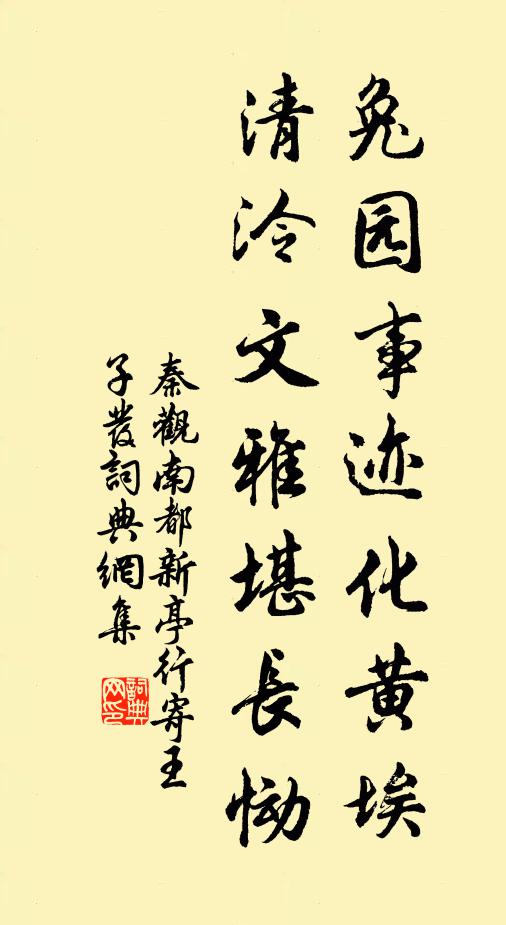 兔园事迹化黄埃
清泠文雅堪長恸
秦觀南都新亭行寄王
子發詞典網集
詞典
网印